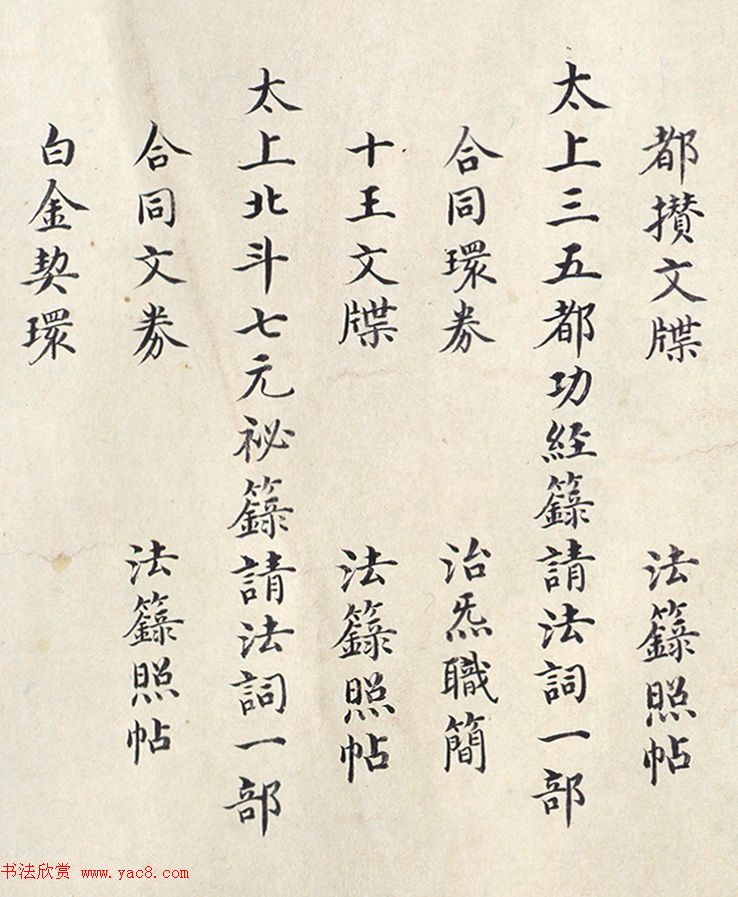 都攢文牒 法籙照帖
太上三五都功經籙請法詞一部
合同環券 治炁職簡
十王文牒 法籙照帖
太上北斗七元祕籙請法詞一部
合同文券 法籙照帖
白金契環
书法欣赏 www.yac8.com